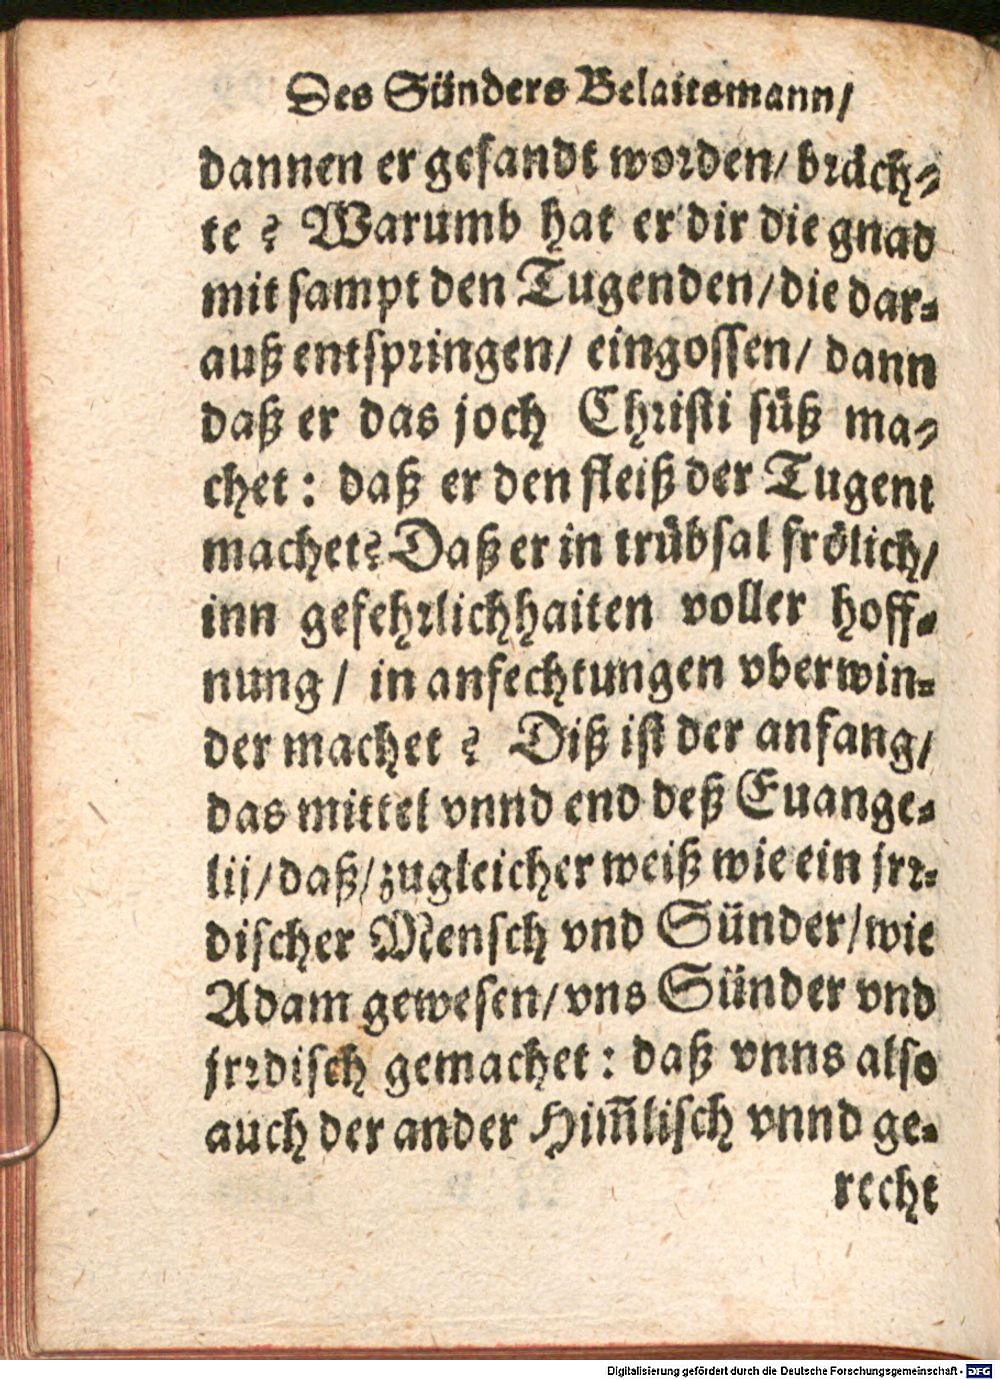 Des Sünders Belaitsmann/
dannen er gesandt worden/ bräch-
te? Warumb hat er dir die gnad
mit sampt den Tugenden/die dar-
auß entspringen/ eingossen/ dann
daß er das joch Christi süß ma-
chet: daß er den fleiß der Tugent
machet? Daß er in trübsal frölich/
inn gefehrlichhaiten voller hoff-
nung/ in anfechtungen vberwin-
der machet? Diß ist der anfang/
das mittel vnnd end deß Euange-
lij/daß/zugleicher weiß wie ein jrr-
discher Mensch vnd Sünder/wie
Adam gewesen/vns Sünder vnd
jrrdisch gemachet: daß vnns also
auch der ander Him̃lisch vnnd ge-
recht
Digitalisierung gefördert durch die Deutsche Forschungsgemeinschaft - DFG